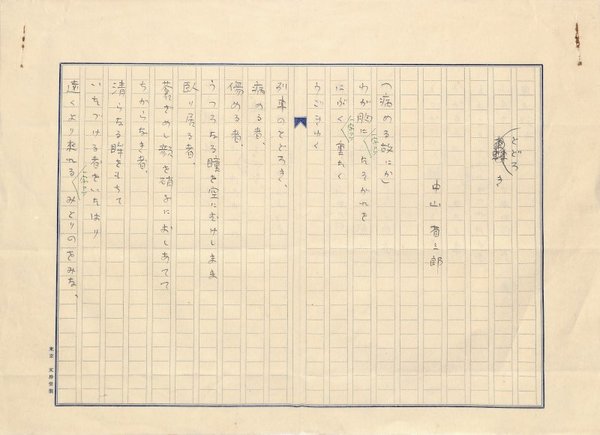 とどろき
中山省三郎
(病める故にか)
わが胸にたそがれを
にぶく重たく
うごきゆく
列車のとどろき、
病める者、
傷める者、
うつろなる瞳を空にむけしまま
臥り居る者、
蒼ざめし額を硝子におしあてて
ちからなき者、
清らなる眸をもちて
いたづける者をいたはり
遠くより来れる みどりのをみな、
東京 文房堂製